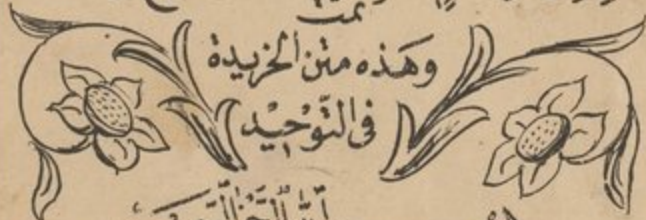 تمت
وهذه متن الخريدة
في التوحيد